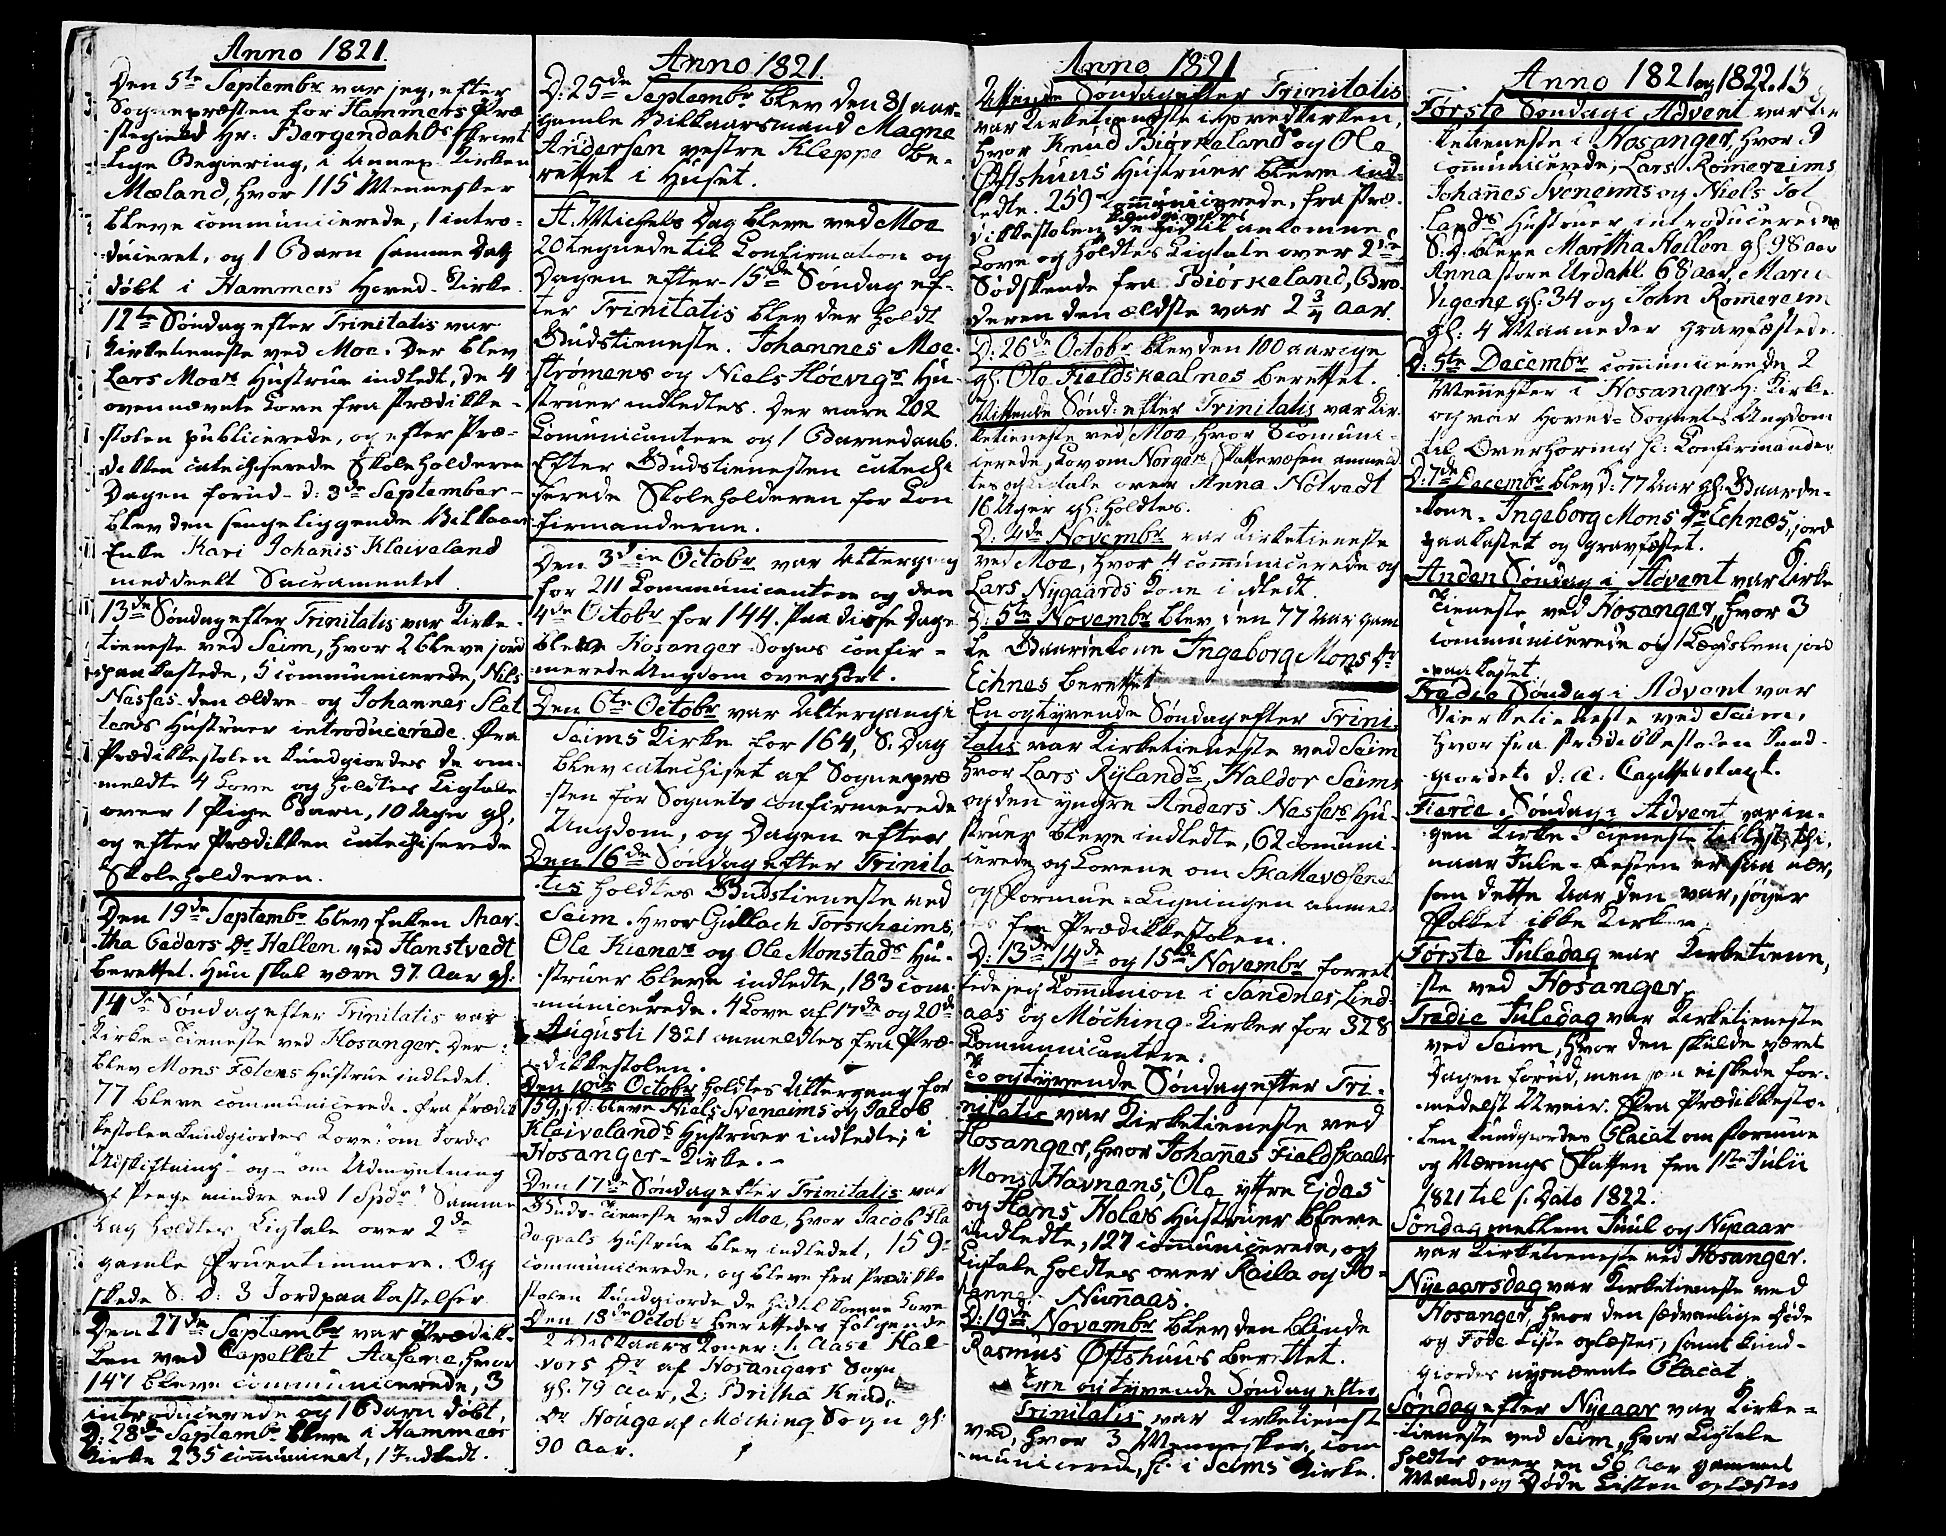 Anno 1821.
Den 5te Septembr var jeg, efter
Sognepræsten for Hammers Præ
stegield Hr: Bergendahls skrivt
lige Begiering, i Annex-Kirken
Mæland, hvor 115 Mennesker
bleve communicerede, 1 intro-
duceret, og 1 Barn samme Dag
døbt i Hammers Hoved-Kirke.
12te Søndag efter Trinitatis var
Kirketieneste ved Moe. Der blev
Lars Moes Hustrue indledt, de 4
ovennævnte Love fra Prædikke-
stolen publicerede, og efter Præ-
dikken catechiserede Skoleholderen
Dagen forud- d: 3de September-
blev den sengeliggende Vilkaars
Enke Kari Johannis Klaiveland
meddeelt Sacramentet
13de Søndag efter Trinitatis var Kirke-
tieneste ved Seim, hvor 2 bleve jord
paakastede, 5 communicerede, Nils
Nesses den ældre og Johannes Slet
tens Hustruer introducerede. Fra
Prædikkestolen kundgiordes de om-
meldte 4 Love og holdtes Ligtale
over 1 Pige Barn, 10 Uger gl,
og efter Prædikken catechiserede
Skoleholderen.
Den 19de Septembr blev Enken Mar-
tha Peders Dr Hellen ved Hanstvedt
berettet. Hun skal være 97 Aar gl:
14de Søndag efter Trinitatis var
Kirke-Tieneste ved Hosanger. Der
blev Mons Fætens Hustrue indledet.
77 bleve communicerede. Fra Prædik
kestolen kundgiordes Love: "om Jords
Udskiftning" og "om Udmyntning
af Penge mindre end 1 Spdr" Samme
Dag holdtes Ligtale over 2de
gamle Fruentimmere. Og
skede S: D: 3 Jordpaakastelser
Den 27de Septembr var Prædik-
ken ved Capellet Aasene, hvor
147 bleve communicerede, 3
introducerede og 1 Barn døbt,
D: 28de Septembr bleve i Hammers
Kirke 235 communicert, 1 Indledt.
Anno 1821.
D: 25de Septembr blev den 81 aar-
gamle Vilkaarsmand Magne
Andersen vestre Kleppe be-
rettet i Huset.
St. Michels Dag bleve ved Moe
20 tegnede til Confirmation og
Dagen efter 15de Søndag ef-
ter Trinitatis blev der holdt
Gudstieneste. Johannes Moe-
strømens og Niels Høevigs Hu-
struer indledtes. Der vare 202
Comunicantere og 1 Barnedaab.
Efter Gudstienesten catechi
serede Skoleholderen for Con
firmanderne.
Den 3die Octobr var Altergang
for 211 Communicantere og den
4de Octobr for 144. Paa disse Dage
bleve Hosanger Sogns confir-
merede Ungdom overhørt.
Den 6te Octobr var Altergang i
Seims Kirke for 164, S: Dag
blev catechiset af Sognepræ
sten for Sognets confirmerede
Ungdom, og Dagen efter
Den 16de Søndag efter Trinita
tis holdtes Gudstieneste ved
Seim. Hvor Gullach Torskheims,
Ole Kienes og Ole Monstads Hu-
struer bleve indledte, 183 com-
municerede. 4 Love af 17de og 20de
Augusti 1821 anmeldtes fra Præ-
dikkestolen.
Den 10de Octobr holdtes Altergang for
159, S: D: bleve Niels Sveneims og Jacob
Klaivelands Hustruer indledte, i
Hosanger-Kirke.-
Den 17de Søndag efter Trinitatis var
Guds-Tieneste ved Moe, hvor Jacob Ha
Hustrue blev indledet, 159
communicerede, og bleve fra Prædikke
stolen kundgiorde de hidtil komne Love
Den 18de Octobr berettedes følgende
2 Vilkaars Koner: 1: Aase Hal
vors Dr af Hosangers Sogn
gl. 79 Aar, 2: Britha Knuds
Dr Houge af Møching Sogn gl:
90 Aar.
Anno 1821
Attende Søndag efter Trinitatis
var Kirketieneste i Hovedkirken,
hvor Knud Biørkeland og Ole
Øftshuus Hustruer bleve ind-
ledte. 259 communicerede, fra Præ-
kundgiordes
dikkestolen de hidtil ankomne
Love og holdtes Ligtale over 2de
Sødskende fra Biørkeland, Bro-
deren den ældste var 2 3/4 Aar.
D: 26de Octobr blev den 100 aarige
gl. Ole Fieldskaalnes berettet.
Nittende Sønd: efter Trinitatis var Kir-
ketieneste ved Moe, hvor 8 comuni-
cerede, Lov om Norges Skattevæsen anmeld
tes og Ligtale over Anna Nøtvedt
16 Uger gl: holdtes.
D: 4de Novembr var Kirketieneste
ved Moe, hvor 4 communicerede og
Lars Nygaards Kone indledt
D: 5te Novembr blev den 77 Aar gam
le Gaardekone Ingeborg Mons Dr
Echnes berettet
En og tyvende Søndag efter Trini
tatis var Kirketieneste ved Seim
hvor Lars Rylands, Haldor Seims
og den yngre Anders Nesses Hu-
struer bleve indledte, 62 comuni-
cerede og Lovene om Skattevæsenet
og Formue-Ligningen anmeld
tes fra Prædikkestolen.
D: 13de, 14de og 15de Novembr forret
tede jeg Communion i Sandnes, Lind-
aas og Møching-Kirker for 328
Communicantere.
To og tyvende Søndag efter Tri-
nitatis var Kirketieneste ved
Hosanger, hvor Johannes Fieldskaals
Mons Havnens, Ole yttre Eidas
og Hans Holes Hustruer bleve
indledte, 127 communicerede, og
Ligtale holdtes over Raila og Jo-
hanne Numaas.
D: 19de Novembr blev den blinde
Rasmus Øftshuus berettet.
Tre og tyvende Søndag efter
Trinitatis var Kirketienest
ved, hvor 3 Mennesker com
municerede, sc: i Seims Kirke.
Anno 1821 og 1822. 13
Første Søndag i Advent var Kir
ketieneste i Hosanger, hvor 9
communicerede, Lars Romereims
Johannes Sveneims og Niels Tot
lands Hustruer introducerede
S: D: bleve Martha Hellen gl. 98 aar
Anna store Urdahl 68 aar, Mari
Vigene gl: 34 og John Romereim
gl: 4 Maaneder gravfæstede.
D: 5te Decembr communicerede 2
Mennesker i Hosanger H: Kirke
og var Hoved-Sognets Ungdom
til Overhøring sc: Confirmander
D: 7de Decembr blev d: 77 Aar gl: Gaarde-
kone Ingeborg Mons Dr Echnes, jord
paakastet og gravfæstet.
Anden Søndag i Advent var Kirke
Tieneste ved Hosanger, hvor 3
communicerede og 1 Lægdslem jord
paakastet
Tredie Søndag i Advent var
Kirketieneste ved Seim,
hvor fra Prædikkestolen kund-
giordets d: A: Capittelstaxt.
Fierde Søndag i Advent var in-
gen Kirke-Tieneste tillyst, thi,
naar Jule-Festen er saa nær,
som dette Aar den var, søger
Folket ikke Kirken.
Første Juledag var Kirketiene,
ste ved Hosanger.
Tredie Juledag var Kirketieneste
ved Seim, hvor den skulde været
Dagen forud, men ei skede for-
medelst Uveir. Fra Prædikkesto-
len kundgiordes Placat om Formue
og Nærings Skatten fra 1ste Julii
1821 til s. Dato 1822.
Søndag mellem Juul og Nyeaar
var Kirketieneste ved Hosanger.
Nyeaarsdag var Kirketieneste ved
Hosanger, hvor den sædvanlige Døde
og Føde Liste oplæstes, samt kund-
giordes nysnævnte Placat
Søndag efter Nyeaar var Kirke-
tieneste ved Seim, hvor Ligtale
holdtes over en 56 Aar gammel
Mand, og Døde Listen oplæstes